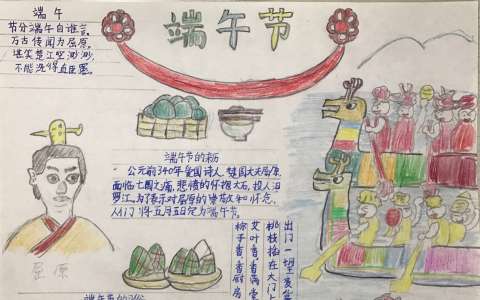 端午
节分端午自谁言,
万古传闻为屈原,
堪笑楚江空渺渺,
不能洗得直臣冤。
端午节
端午节的来历
公元前340年爱国诗人,楚国大夫屈原,
面临亡国之痛,悲愤的怀抱大石,投入汨
罗江,为了表示对屈原的崇敬和怀念,
人们将五月五日定为端午节。
屈原
出门一望麦
桃枝插在大门上
艾叶香,香满堂
粽子香,香厨房
端午节的习俗